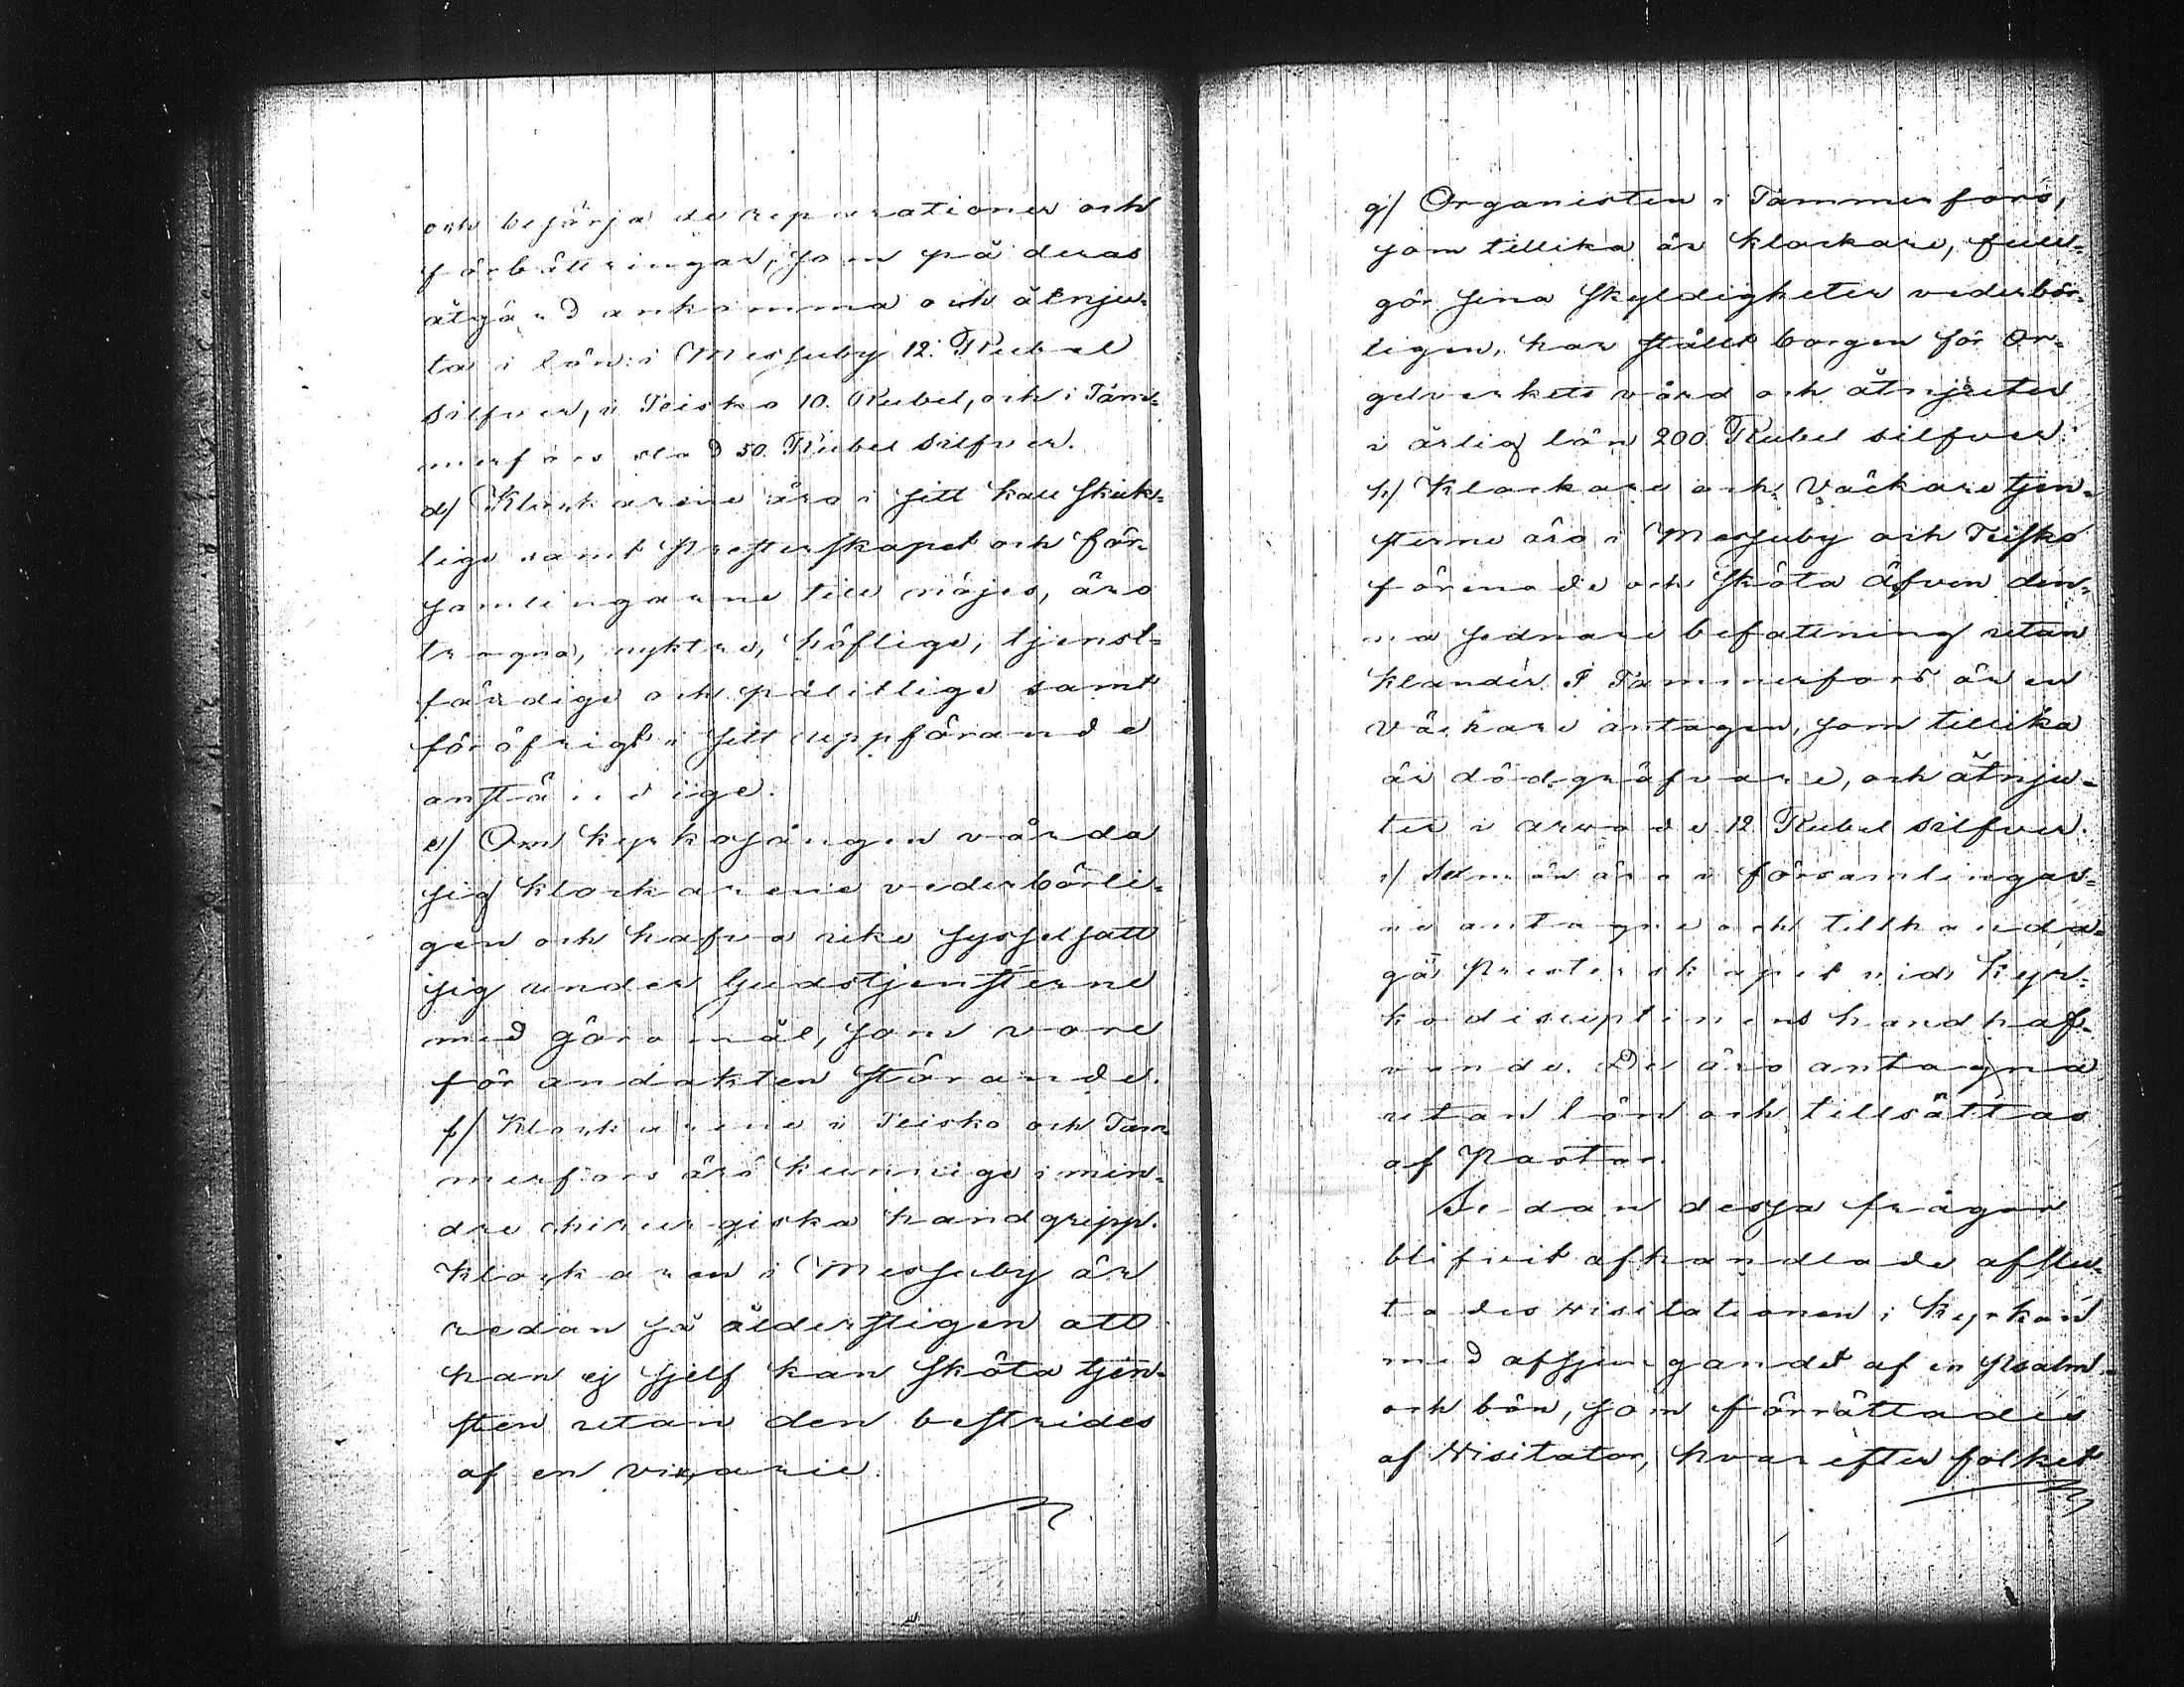 och besörja de reparationer och
förbättringar, som på deras
åtgärd ankomma och åtnju-
ta i lön: i Messuby 12. Rubel
silfver, i Teisko 10. Rubel, och i Tam-
merfors stad 50. Rubel silfver.
d/ Klockarene äro i sitt kall skick-
lige samt Presterskapet och för-
samlingarne till nöjes, äro
trogna, nyktre, höflige, tjenst-
färdige och pålitlige samt
för öfrigt i sitt uppförande
anständige.
e/ Om kyrkosången vårda
sig klockarene vederbörli-
gen och hafva icke sysselsatt
sig under Gudstjensterne
med göromål, som vore
för andakten störande.
f/ Klockarene i Teisko och Tam-
merfors äro kunnige i min-
dre chirurgiska handgripp.
Klockaren i Messuby är
redan så ålderstigen att
han ej sjelf kan sköta tjen-
sten utan den bestrides
af en vicarie.
g/ Organisten i Tammerfors,
som tillika är klockare, full-
gör sina skyldigheter vederbör-
ligen, har ställt borgen för Or-
gelverkets vård och åtnjuter
i årlig lön 200. Rubel silfver.
h/ Klockare och Väckare tjen-
sterne äro i Messuby och Teisko
förenade och sköta äfven den-
na sednare befattning utan
klander. I Tammerfors är en
Väckare antagen, som tillika
är dödgräfvare, och åtnju-
ter i arvode 12 Rubel silfver.
i/ Sexmän äro i församlingar-
ne antagne och tillhanda-
gå Presterskapet vid kyr-
kodisciplinens handhaf-
vande. De äro antagna
utan lön och tillsättas
af Pastor.
Sedan dessa frågor
blifvit afhandlade afslu-
tades Visitationen i kyrkan
med afsjungandet af en psalm
och bön, som förrättades
af Visitator, hvarefter folket